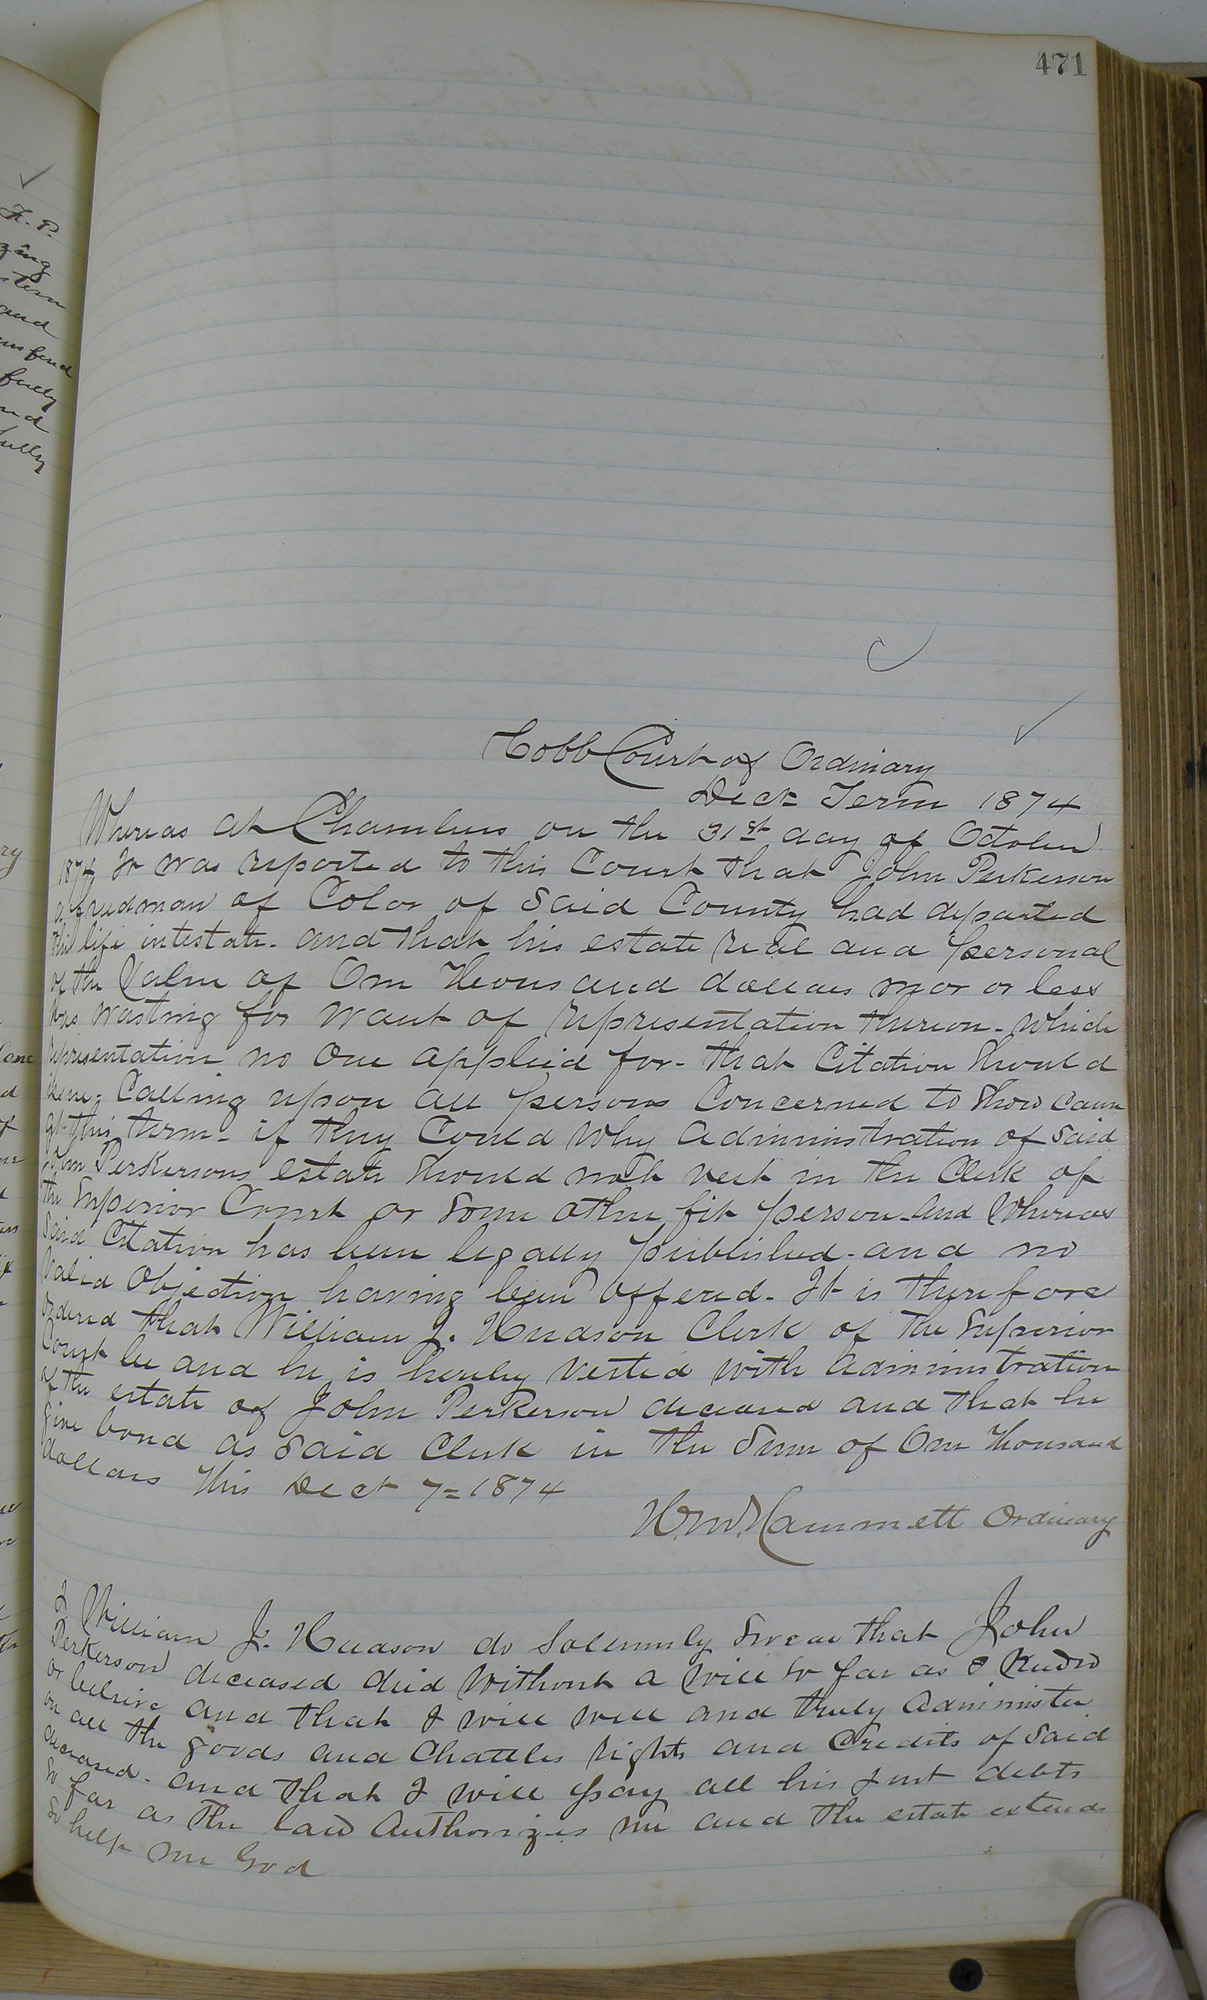 471
Cobb Court of Ordinary
Dect Term 1874
Whereas at Chambers on the 31st day of October
1874 it was reported to this Court that John Perkerson
a freedman of Color of Said County had departed
this life intestate. and that his estate real and personal
of the Value of One Thousand dollars mor or less
was wasting for want of representation thereon. which
representation no one applied for. that Citation Should
issue. Calling upon all persons Concerned to Show Cause
at this term. if they Could why administration of Said
John Perkersons estate should not vest in the Clerk of
the Superior Court or Some other fit person. and Whereas
Said Citation has been legally published. and no
valid Objection having been offered. It is therefore
ordered that William J. Hudson Clerk of the Superior
Court be and he is hereby vested with administration
of the estate of John Perkerson deceased and that he
give bond as said Clerk in the Sum of One Thousand
dollars This Dect 7=1874
Wm Hammett Ordinary
I William J. Hudson do Solemnly Swear that John
Perkerson deceased died without a will so far as I Know
or beleive and that I will well and truly administer
on all the goods and Chattles rights and Credits of Said
deceased. and that I will pay all his Just debts
so far as the law Authorizes me and the estate extends
So help me God
✓
F. P.
zing
stern
and
fully
nd
fully